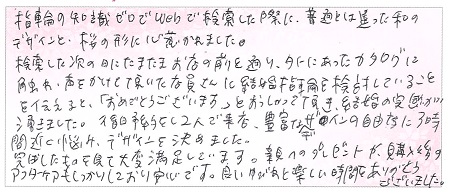 指輪の知識ゼロでWebで検索した際に、普通とは違った和の
デザインと、桜の形に心惹かれました。
検索した次の日にたまたまお店の前を通り、外にあったカタログに
触れ、声をかけて頂いた店員さんに結婚指輪を検討していること
を伝えると、「おめでとうございます」とおっしゃって頂き、結婚の実感が
湧きました。後日予約をし2人で来店、豊富なデザインの自由さに3時
間近く悩み、デザインを決めました。
完成したものを見て大変満足しています。親へのプレゼントや、購入後の
アフターケアもしっかりしており安心です。良い力がと楽しい時間をありがとう
ございました。